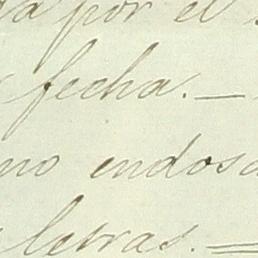 por el
fecha. —
no endosa
letras. =